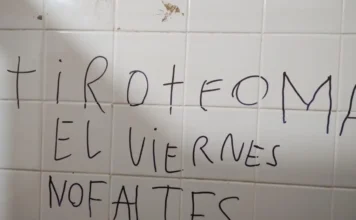 tiROtEOMA
EL ViERNES
NOFAlTES